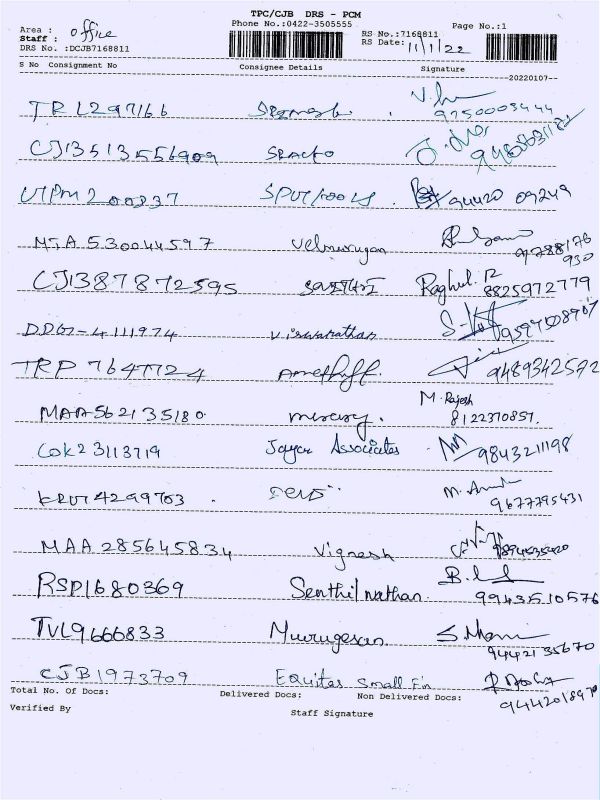 TPC/CJB DRS - PCM
Area : office Phone No.:0422-3505555 Page No.:1
Staff : RS No.:7168811
DRS No. :DCJB7168811 RS Date: 11/1/22
S No Consignment No Consignee Details Signature
20220107
TRL297166 9750003444
CJ13513556909
UTPM200837 94420 09249
MJA530044597 Velmurugan 9788176930
CJ1387872595 Raghul.R 8825972779
DDG-4111974 Viswanathan
TRP7647724 9489342572
MAA562135180 mercury. M. Rajesh 8122370857.
COK23113719 Jayar Associates 9843211198
4299703 9677795431
MAA285645834 Vignesh
RSP1680369 Senthil nathan. 9943510576
TVL9666833 Murugesan S. Mani 9442135670
CJB1973709 Equitas Small Fin 9442018970
Total No. Of Docs: Delivered Docs: Non Delivered Docs:
Verified By Staff Signature